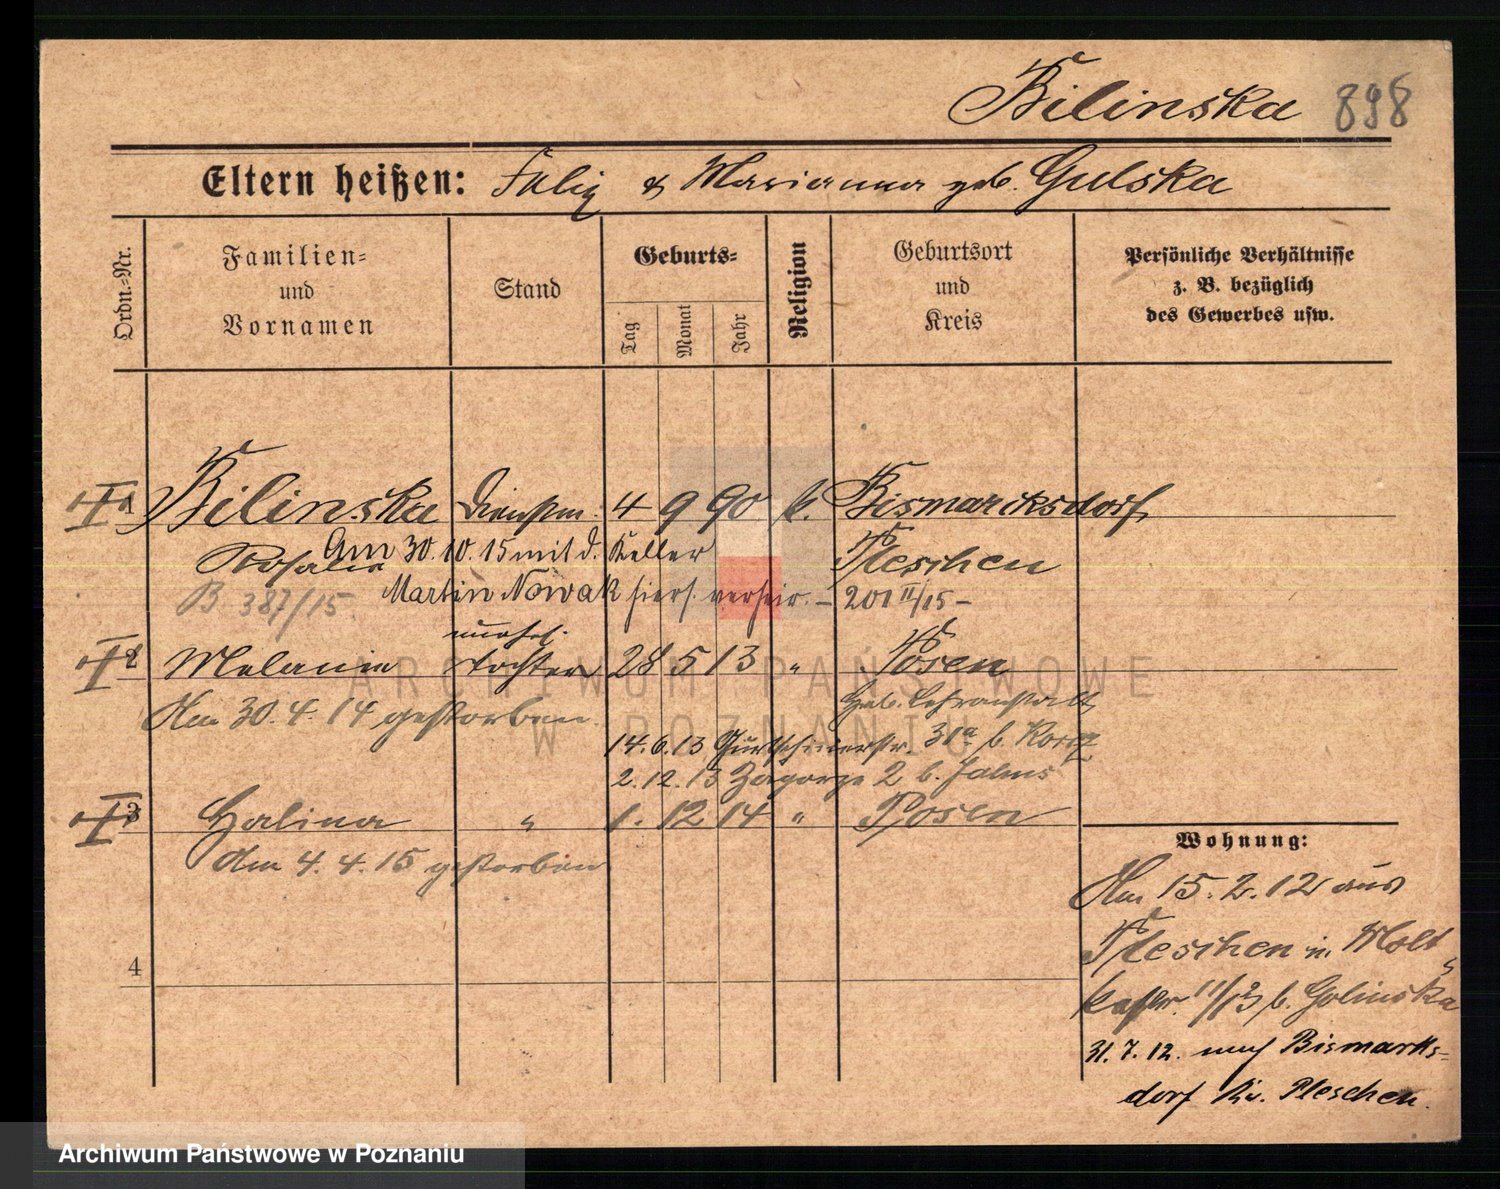 Bilinska 898
Eltern heißen: Felix & Marianna geb. Gulska
Ordn.-Nr.
Familien- und Vornamen
Stand
Geburts-
Tag
Monat
Jahr
Religion
Geburtsort und Kreis
Persönliche Verhältnisse z. B. bezüglich des Gewerbes usw.
1 Bilinska Dienstm. 4 9 90 k. Bismarcksdorf
Rosalie Am 30.10.15 mit d. Keller Pleschen
Martin Nowak hiers. verheir. – 201 II/15 –
B. 387/15
unehel.
2 Melanie Tochter 28 5 13 " Posen
Am 30.4.14 gestorben. Heb. Lehranstalt
14.6.13 Gurtschinerstr. 31a b.
2.12.13 Zagorze 2 b.
3 Halina " 1. 12 14 " Posen
Am 4.4.15 gestorben
4
Wohnung:
Am 15.2.12 aus
Pleschen n. Molt-
kestr. 11/13 b. Golinska
31.7.12. nach Bismarks-
dorf Kr. Pleschen.
ARCHIWUM PAŃSTWOWE
W POZNANIU
Archiwum Państwowe w Poznaniu